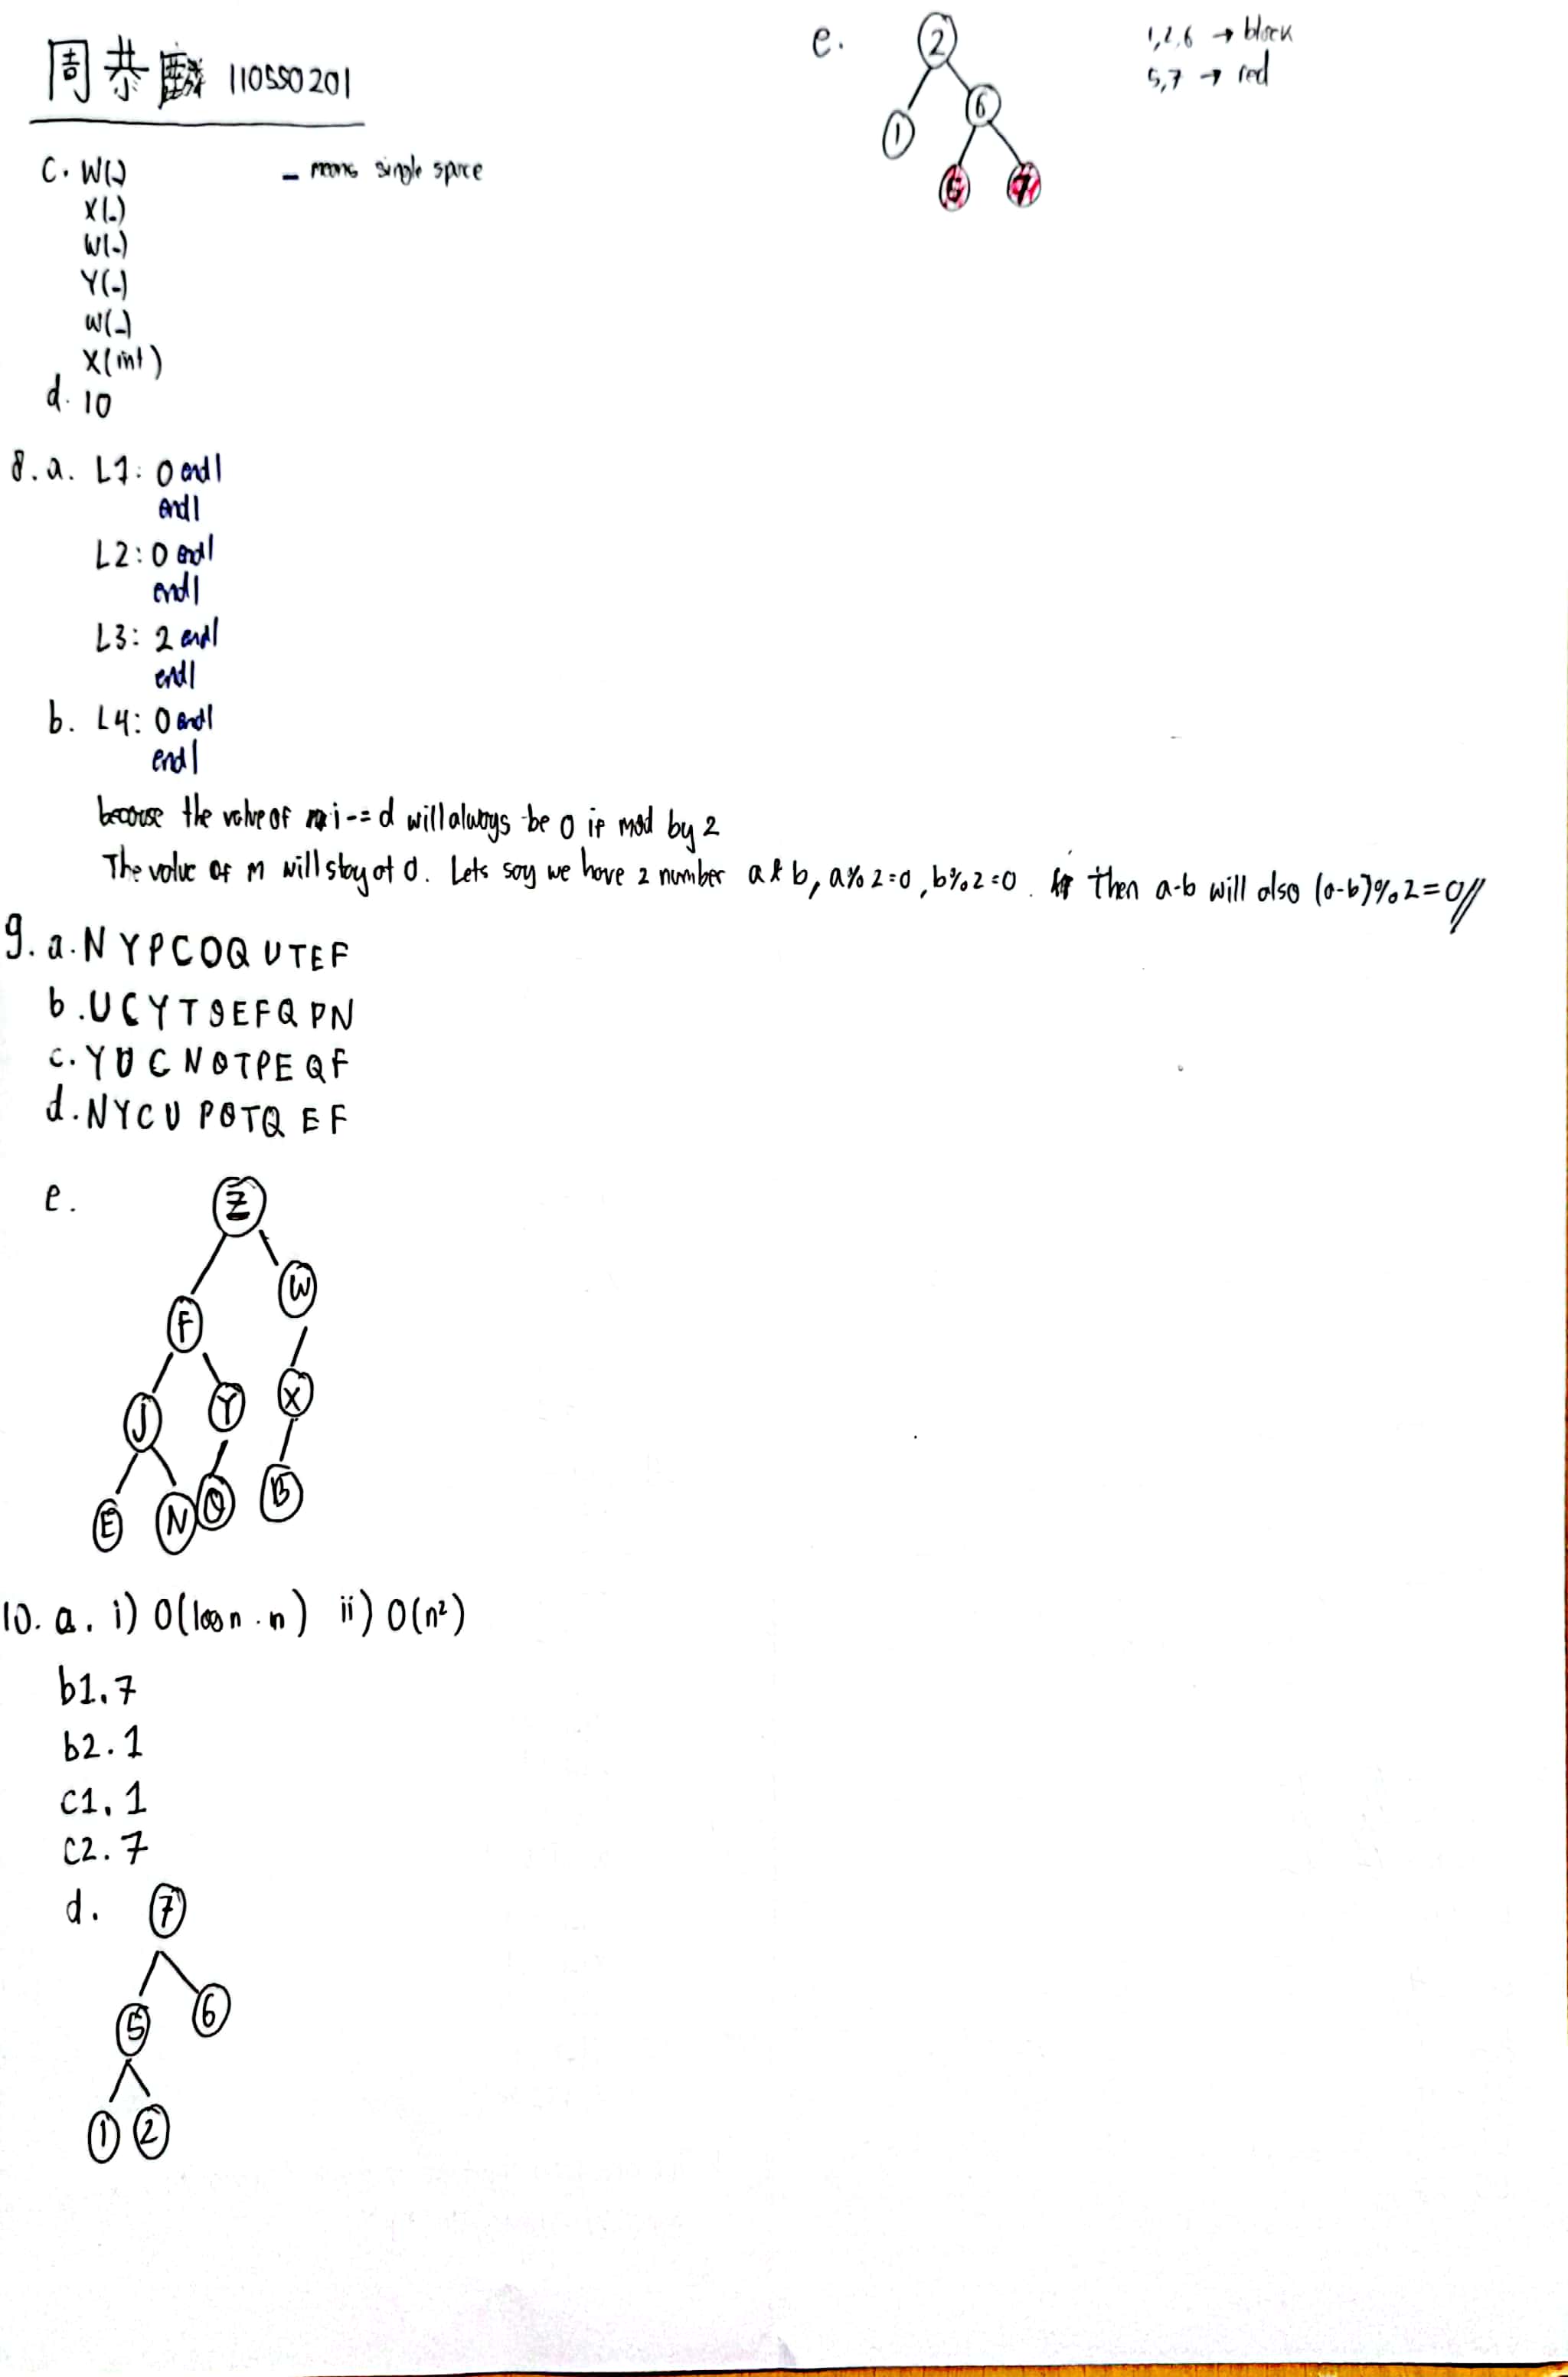 周恭麟 110550201
C. W(_)
X(_)
W(_)
Y(_)
W(_)
X(int)
_ means single space
d. 10
8. a. L1: 0 endl
endl
L2: 0 endl
endl
L3: 2 endl
endl
b. L4: 0 endl
endl
because the value of i-=d will always be 0 if mod by 2
The value of m will stay at 0. Lets say we have 2 number a & b, a%2=0, b%2=0. then a-b will also (a-b)%2=0//
9. a. N Y P C O Q U T E F
b. U C Y T O E F Q P N
c. Y U C N O T P E Q F
d. N Y C U P O T Q E F
e.
Z
W
F
J Y X
E N O B
10. a. i) O(log n . n) ii) O(n²)
b1. 7
b2. 1
c1. 1
c2. 7
d. 7
5 6
1 2
e. 2
1 6
5 7
1,2,6 → black
5,7 → red